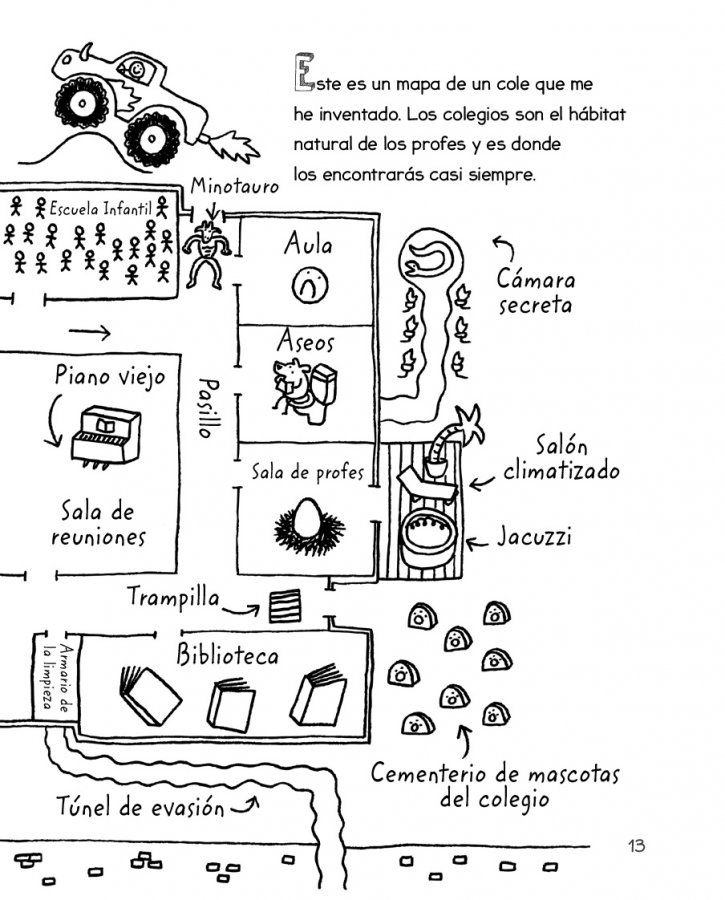 Este es un mapa de un cole que me
he inventado. Los colegios son el hábitat
natural de los profes y es donde
los encontrarás casi siempre.
Minotauro
Escuela Infantil
Aula
Cámara
secreta
Aseos
Piano viejo
Pasillo
Sala de profes
Salón
climatizado
Sala de
reuniones
Jacuzzi
Trampilla
Biblioteca
Armario de
la limpieza
Cementerio de mascotas
del colegio
Túnel de evasión
13